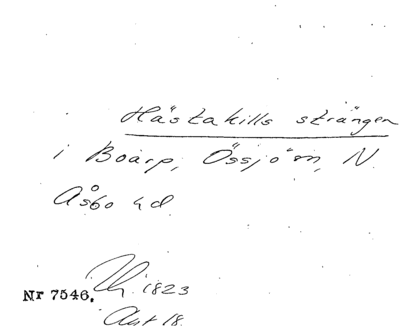 Hästakills strängen
i Boarp, Össjö sn, N.
Åsbo hd.
Nr 7546. 1823
Akt 18.